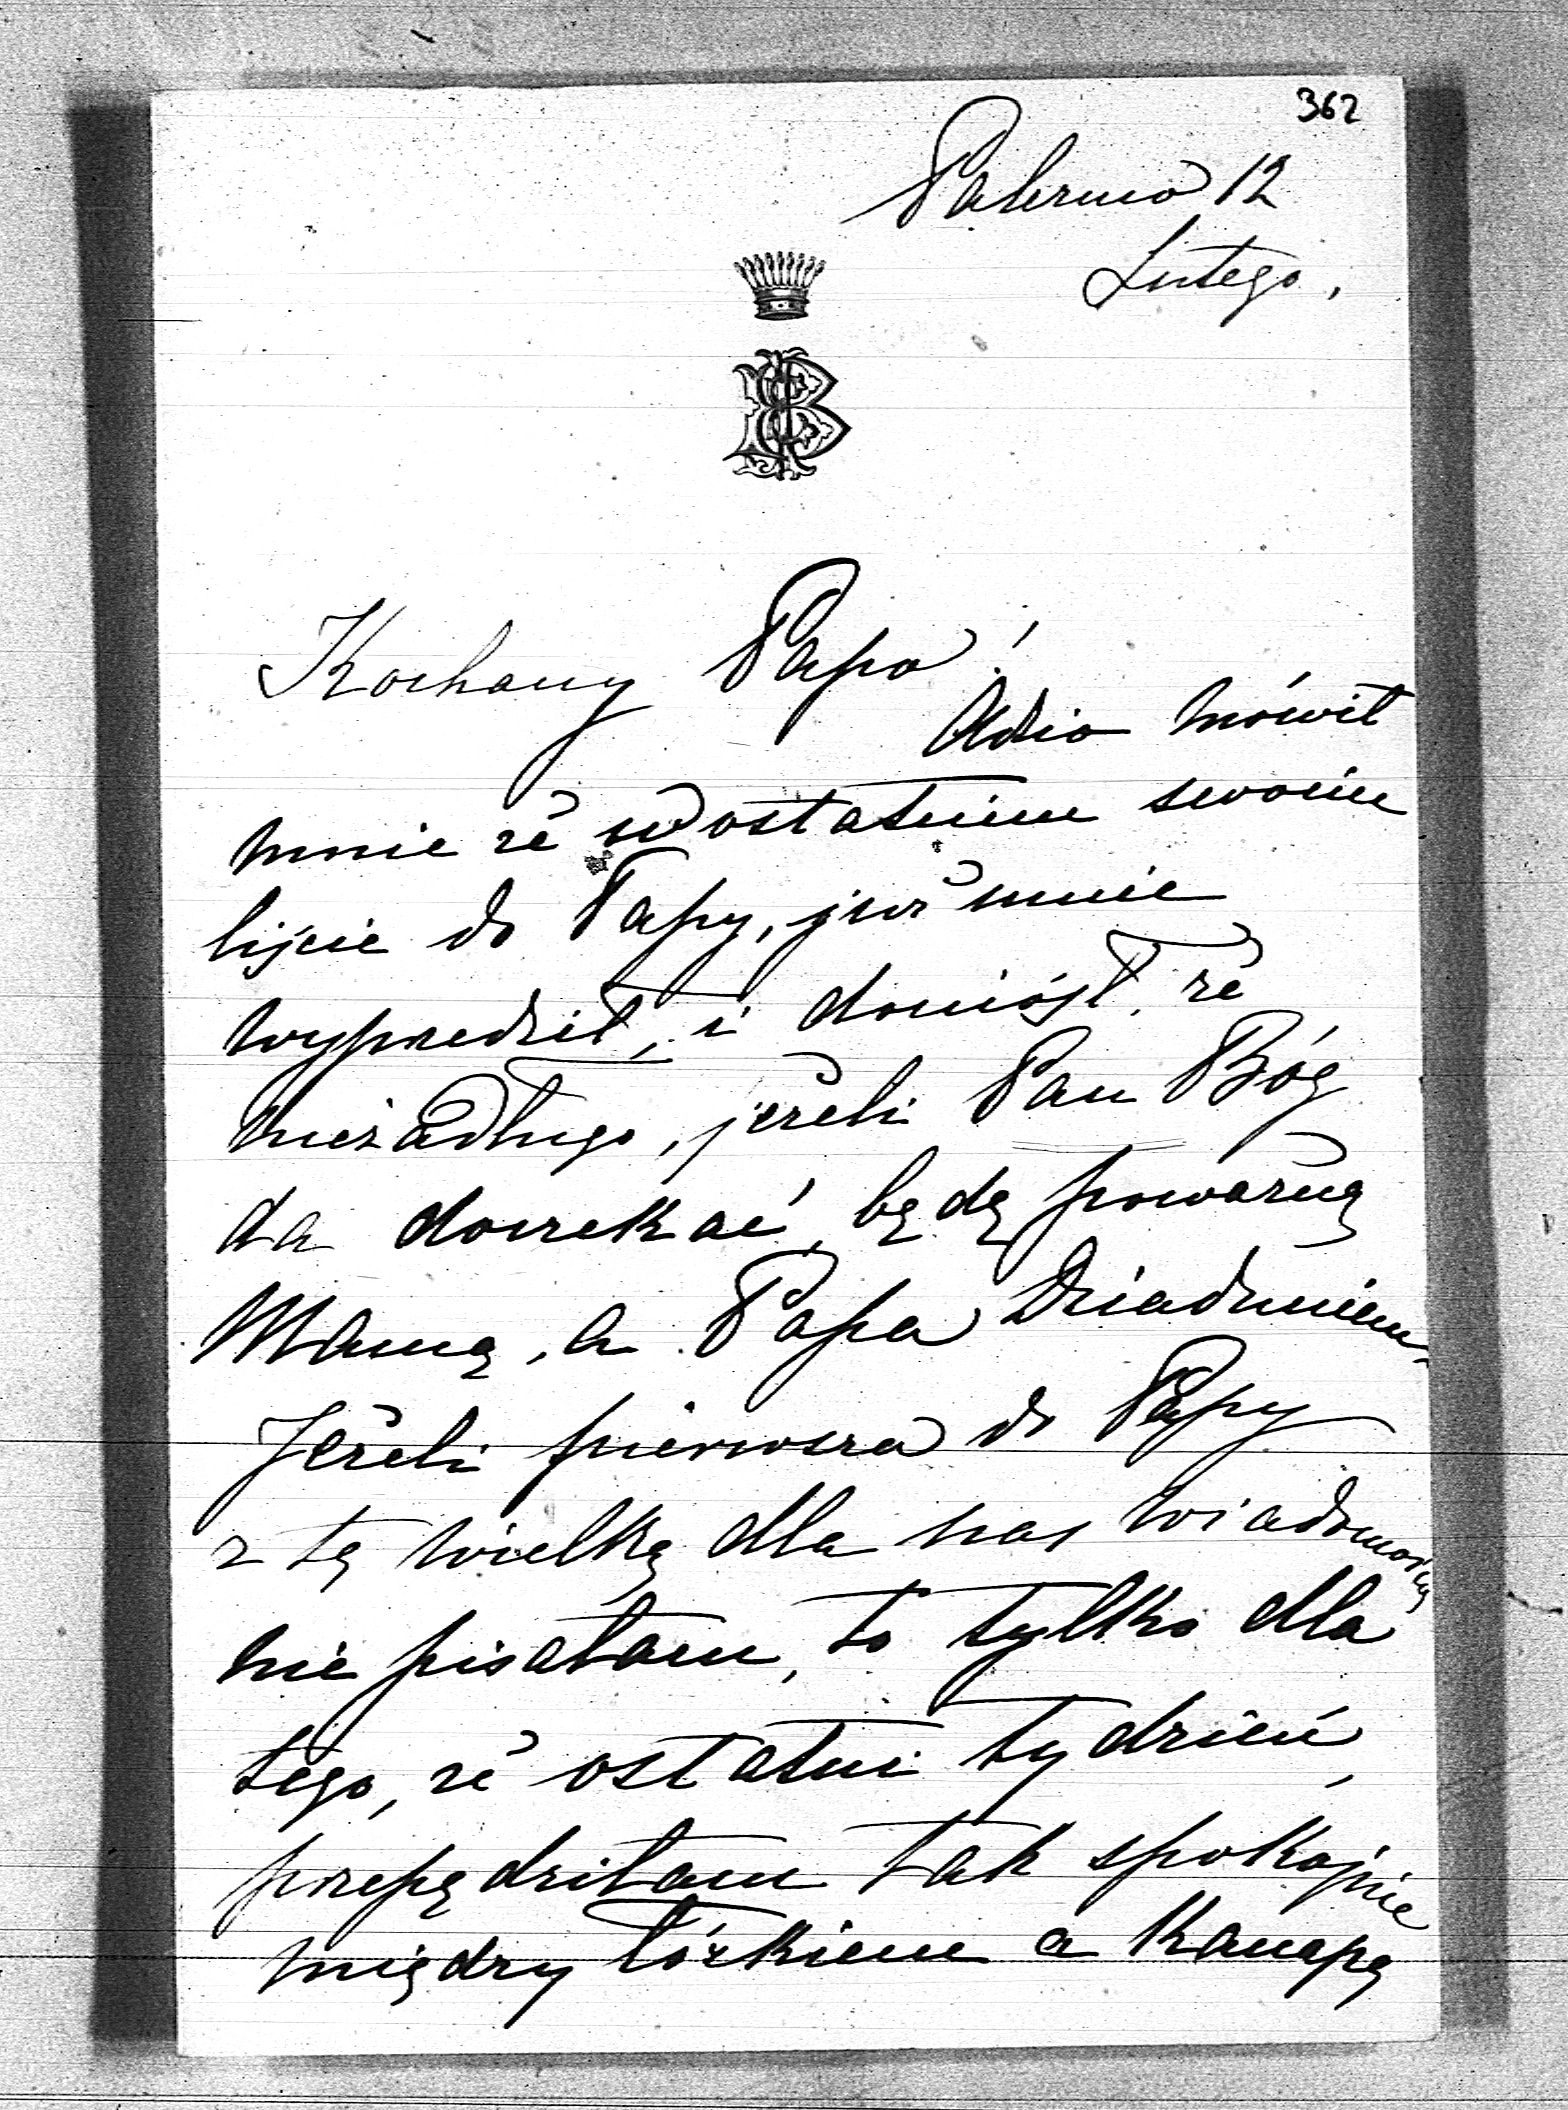 362
Palermo 12
Lutego.
Kochany Papo!
Adzio mówił
mnie że w ostatnim swoim
liście do Papy, już mnie
wyprzedził, i doniósł, że
niezadługo, jeżeli Pan Bóg
da doczekać, będę poważną
Mamą, a Papa Dziaduniem.
Jeżeli pierwsza do Papy
z tą wielką dla nas wiadomością
nie pisałam, to tylko dla
tego, że ostatni tydzień,
przepędziłam tak spokojnie
między łóżkiem a kanapą